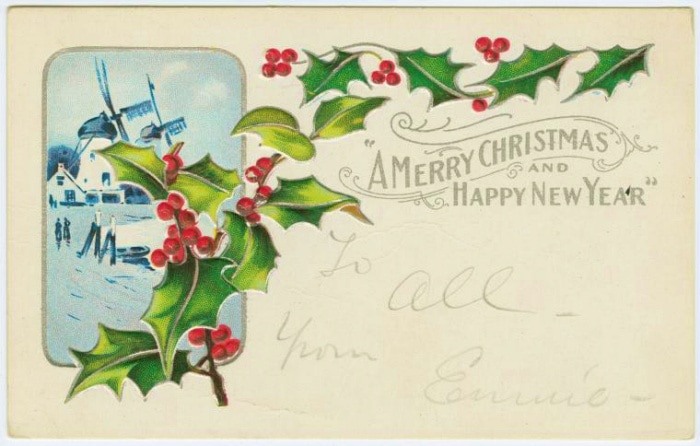 "A MERRY CHRISTMAS
AND
HAPPY NEW YEAR"
To
all -
From
Emmie -